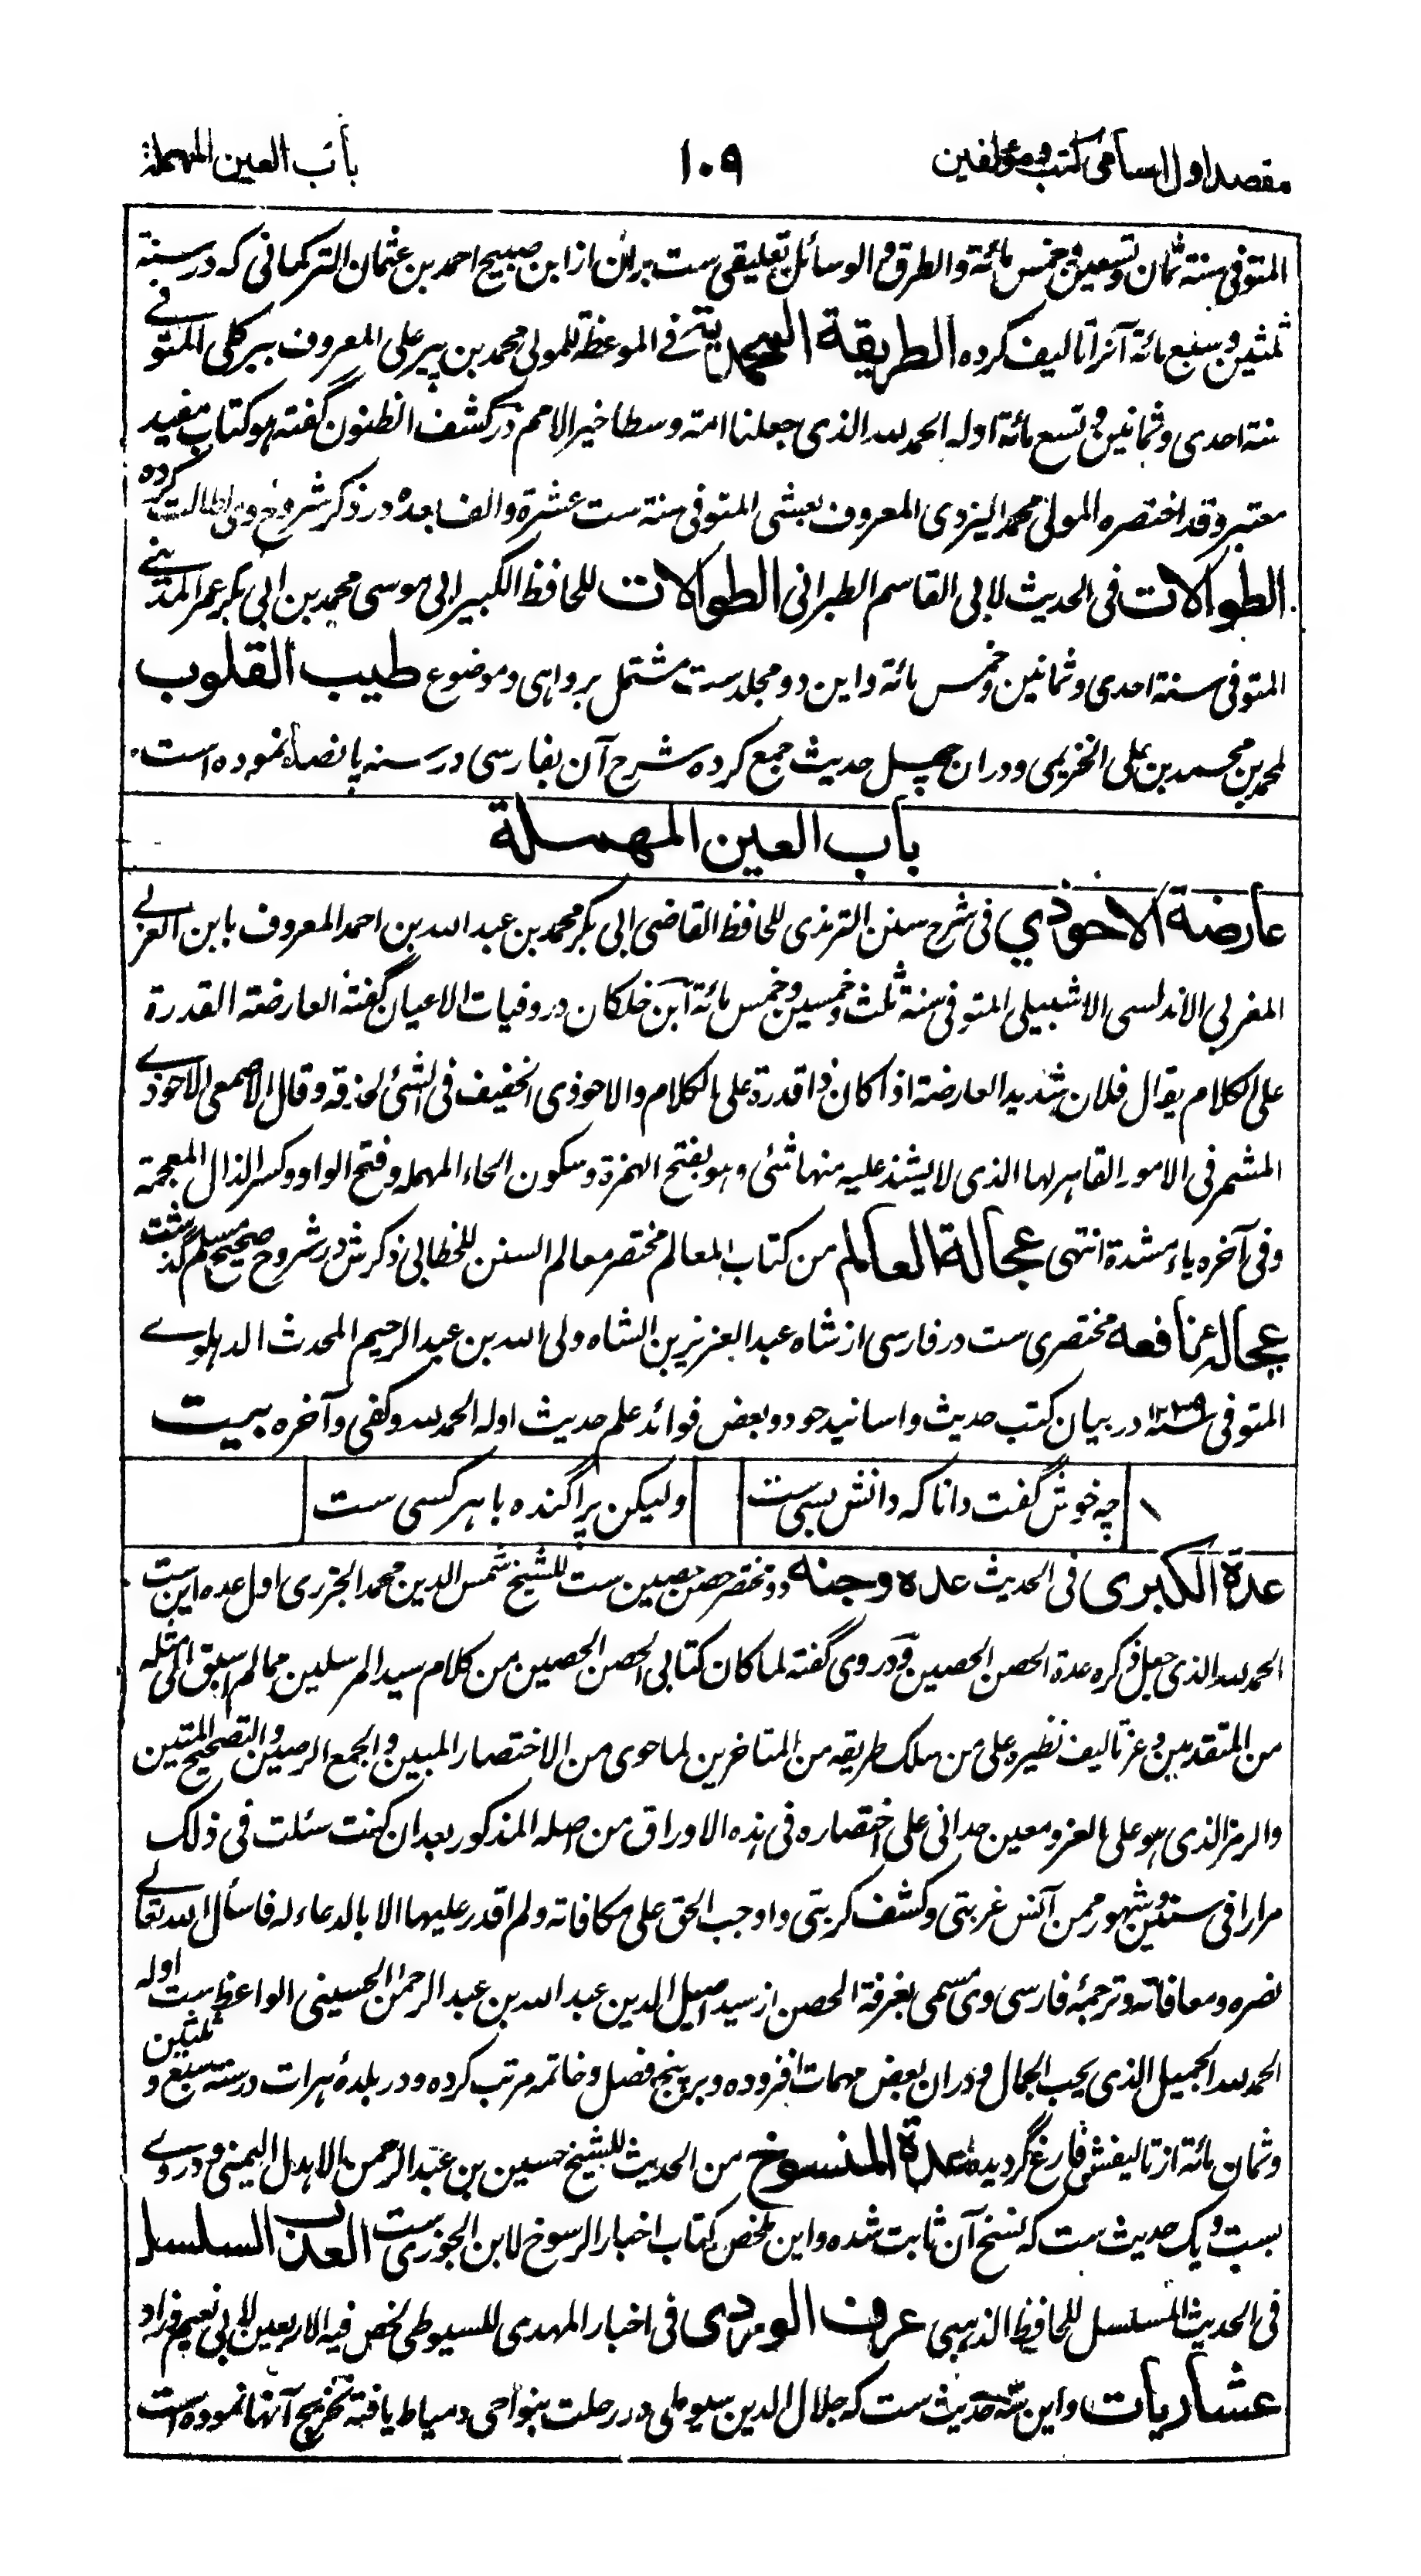 مقصد اول اسامی کتب و مؤلفین
۱۰۹
باب العین المهملة
المتوفی سنة ثمان وتسعین وخمس مائة والطرق و الوسائل تعلیقی ست بران از ابن صبیح احمد بن عثمان الترکمانی که در سنة
ثلثین و سبع مائة آنرا تالیف کرده الطریقة المحمدیة فی الموعظة للمولی محمد بن پیر علی المعروف ببرکلی المتوفی
سنة احدی و ثمانین و تسع مائة اوله الحمد لله الذی جعلنا امة وسطا خیر الامم در کشف الظنون گفته هو کتاب مفید
معتبر وقد اختصره المولی محمد الیزدی المعروف بعشی المتوفی سنة ست عشرة و الف بعده در ذکر شروح وی اطالت کرده
الطوالات فی الحدیث لابی القاسم الطبرانی الطوالات للحافظ الکبیر ابی موسی محمد بن ابی بکر عمر المدینی
المتوفی سنة احدی و ثمانین و خمس مائة و این دو مجلد ست مشتمل بر واهی و موضوع طیب القلوب
لمحمد بن محمد بن علی الخریمی و دران چهل حدیث جمع کرده شرح آن بفارسی در سنه پانصد نموده است
باب العین المهملة
عارضة الاحوذی فی شرح سنن الترمذی للحافظ القاضی ابی بکر محمد بن عبد الله بن احمد المعروف بابن العربی
المغربی الاندلسی الاشبیلی المتوفی سنة ثلث و خمسین و خمس مائة ابن خلکان در وفیات الاعیان گفته العارضة القدرة
علی الکلام یقال فلان شدید العارضة اذا کان ذا قدرة علی الکلام والاحوذی الخفیف فی الشئ لحذقه وقال الاصمعی الاحوذی
المشمر فی الامور القاهر لها الذی لا یشذ علیه منها شئی وهو بفتح الهمزة وسکون الحاء المهملة وفتح الواو وکسر الذال المعجمة
وفی آخره یاء مشدة انتهی عجالة العالم من کتاب المعالم مختصر معالم السنن للخطابی ذکرش در شروح صحیح مسلم گذشت
عجاله نافعه مختصری ست در فارسی از شاه عبد العزیز بن الشاه ولی الله بن عبد الرحیم المحدث الدهلوی
المتوفی ۱۲۳۹ در بیان کتب حدیث و اسانید خود و بعض فوائد علم حدیث اوله الحمد لله وکفی و آخره بیت
چه خوش گفت دانا که دانش بسی ست
ولیکن پراگنده با هر کسی ست
عدة الکبری فی الحدیث عده وجنه دو مختصر حصن حصین ست للشیخ شمس الدین محمد الجزری اول عده این ست
الحمد لله الذی جعل ذکره عدة الحصن الحصین و در وی گفته لما کان کتابی الحصن الحصین من کلام سید المرسلین مما لم اسبق الی مثله
من المتقدمین وعز تالیف نظیره علی من سلک طریقه من المتاخرین لما حوی من الاختصار المبین و الجمع الرصین والتصحیح المتین
والرمز الذی هو علی العزو معین حدانی علی اختصاره فی هذه الاوراق من اصله المذکور بعد ان کنت سئلت فی ذلک
مرارا فی سنین وشهور ممن آنس غربتی وکشف کربتی واوجب الحق علی مکافاته ولم اقدر علیها الا بالدعاء له فاسأل الله تعالی
نصره ومعافاته و ترجمهٔ فارسی وی مسمی بغرفة الحصن از سید اصیل الدین عبد الله بن عبد الرحمن الحسینی الواعظ ست اوله
الحمد لله الجمیل الذی یحب الجمال و دران بعض مهمات افزوده و بر پنج فصل و خاتمه مرتب کرده و در بلدهٔ هرات در سنة سبع و ثلثین
وثمان مائة از تالیفش فارغ گردیده عدة المنسوخ من الحدیث للشیخ حسین بن عبد الرحمن الاهدل الیمنی و در وی
بست و یک حدیث ست که نسخ آن ثابت شده و این ملخص کتاب اخبار الرسوخ لابن الجوزی ست العذب السلسل
فی الحدیث المسلسل للحافظ الذهبی عرف الوردی فی اخبار المهدی للسیوطی لخص فیه الاربعین لابی نعیم وزاد
عشاریات و این سه حدیث ست که جلال الدین سیوطی در رحلت بنواحی دمیاط یافته تخریج آنها نموده است